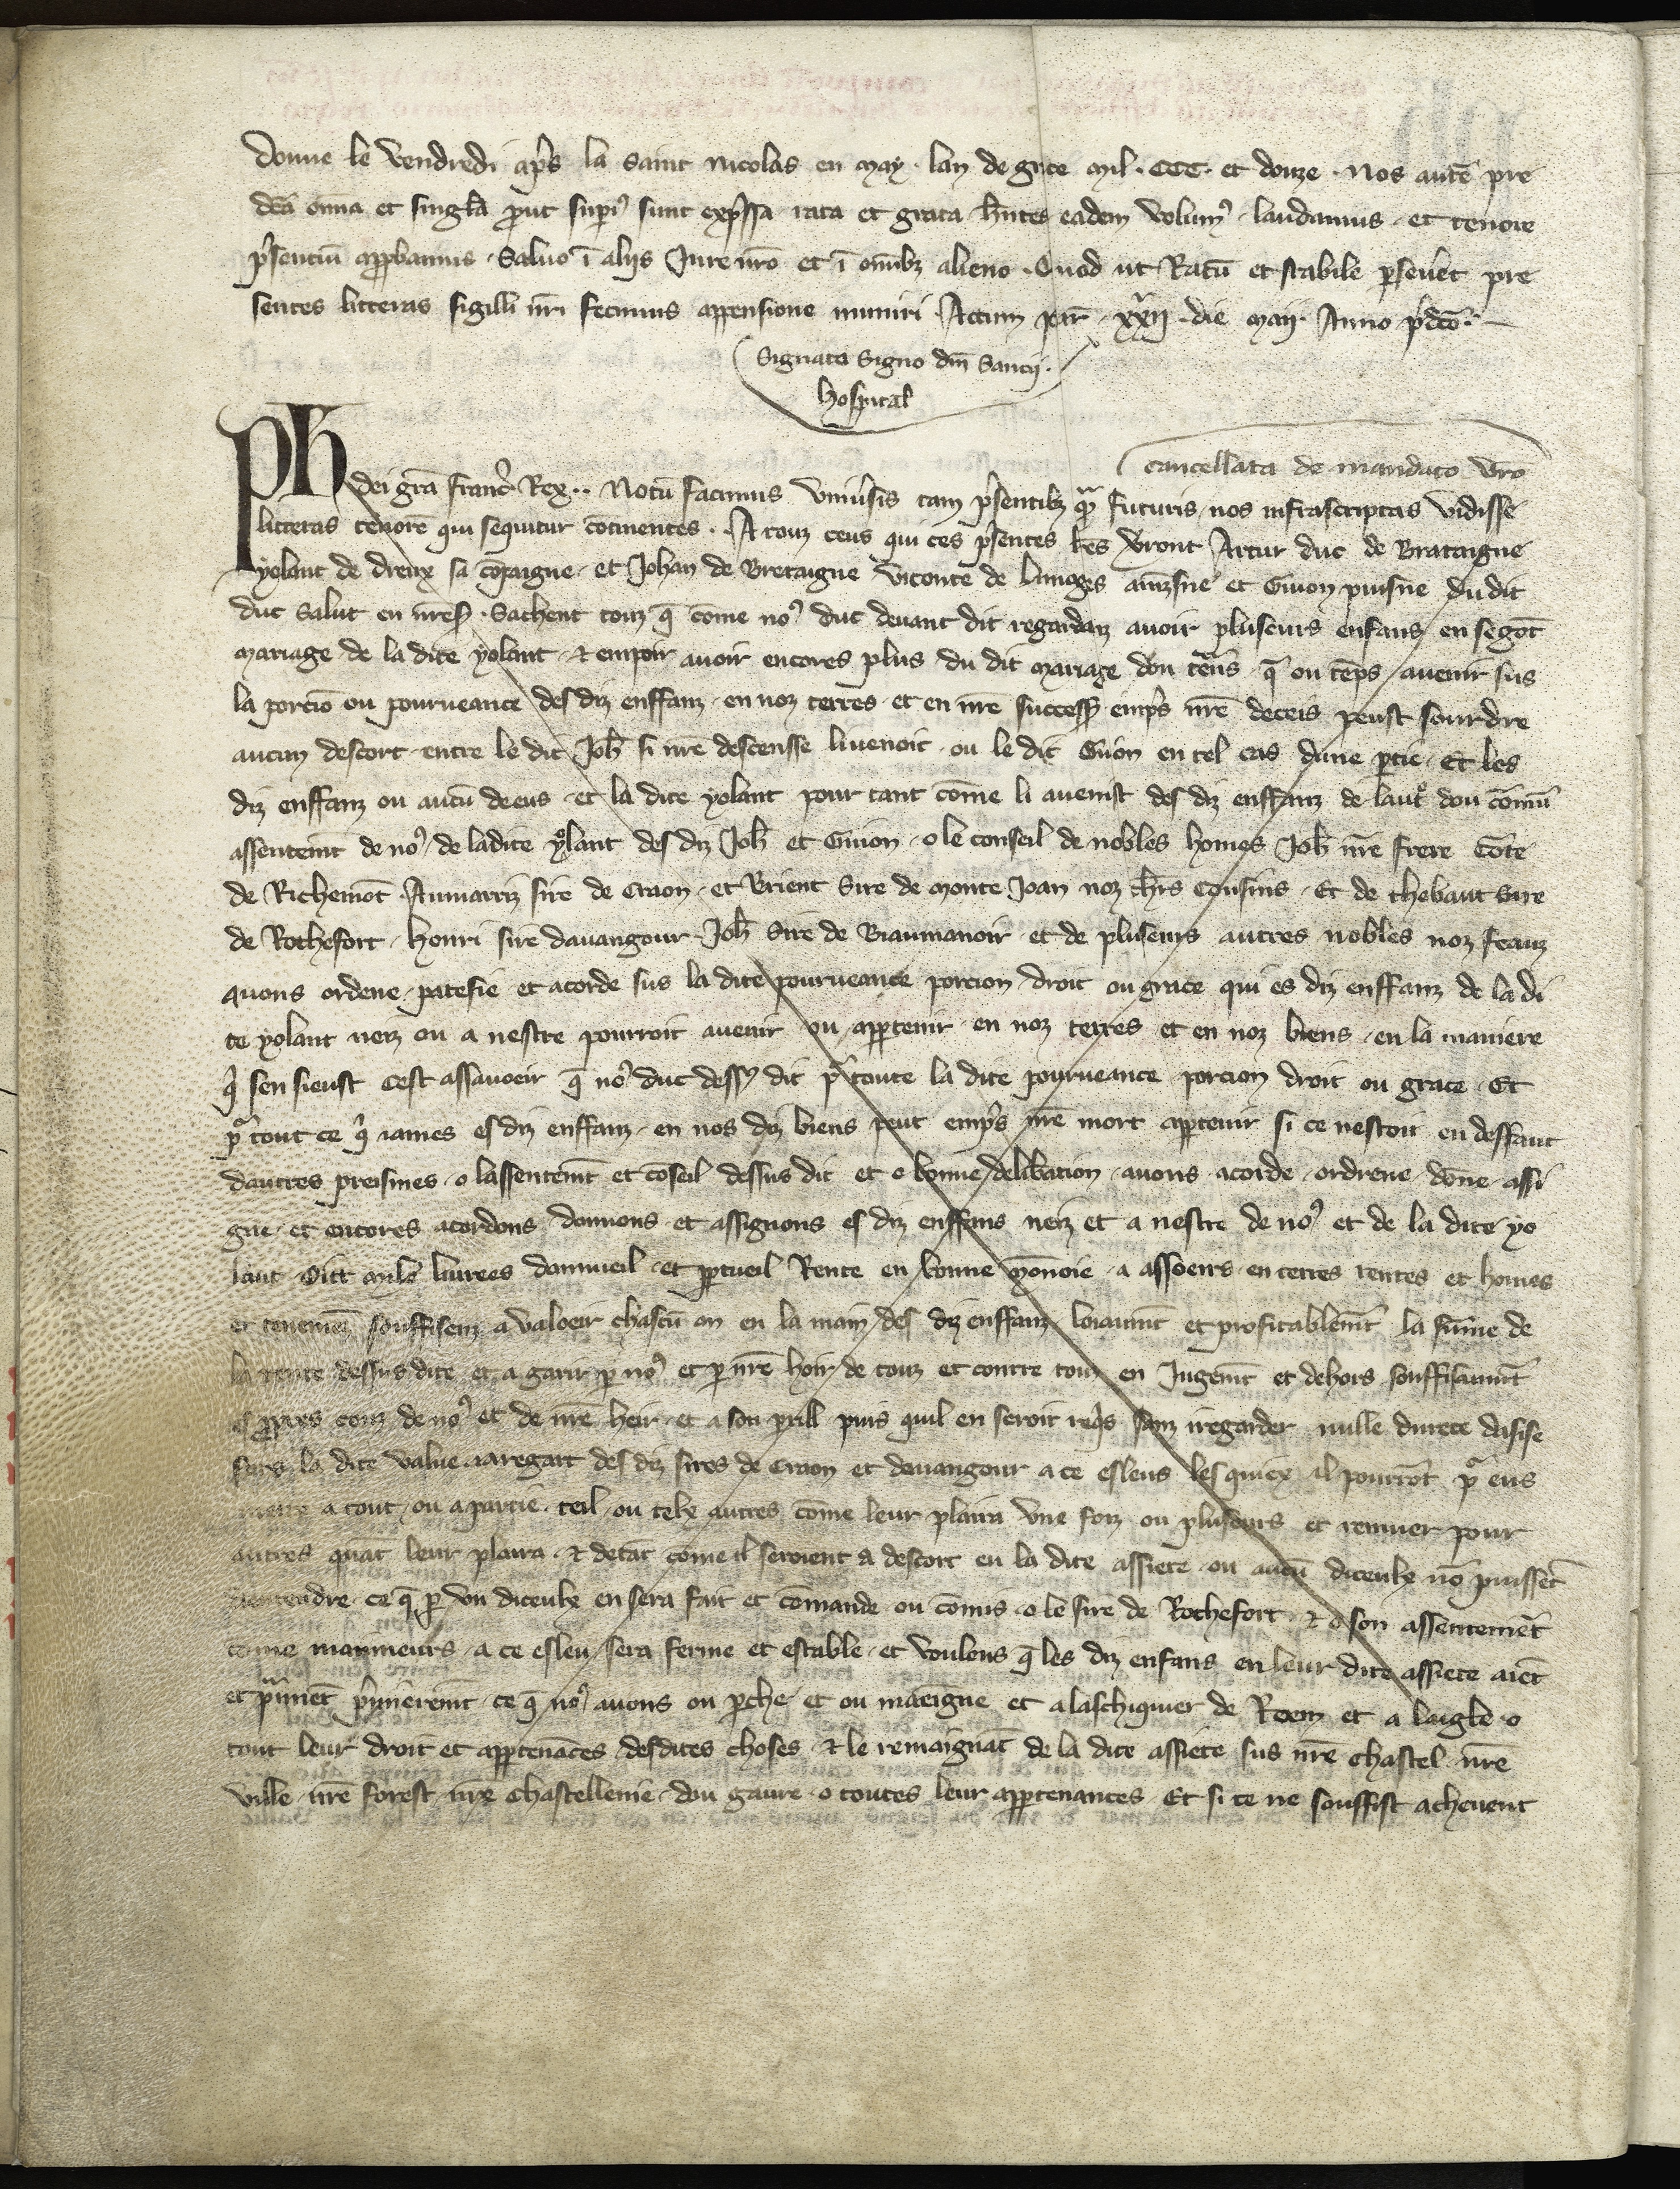 donne le vendredi ap̃s la saint Nicolas en may · lan de grace mil · CCC · et douze · Nos autẽ pre
dc̃a om̃ia et singl̃a ꝓut supiꝰ sunt exp̃ssa rata et grata hñtes eadem volumꝰ laudamus · et tenore
p̃sentiũ app̃bamus · Saluo ĩ alijs Jure nr̃o et ĩ om̃ibꝫ alieno · Quod ut Ratũ et stabile ꝑseueret pre
sentes litteras sigilli nr̃i fecimus appensione muniri Actum par̃ · xxij · die maij · Anno p̃dc̃o ·
Signata Signo dñi Sancij ·
hospital
cancellata de mandato vr̃o
Ph dei gr̃a franc̃ Rex ·· Notũ facimus vniũsis tam p̃sentibꝫ q̃ᵃ futuris nos infrascriptas vidisse
litteras tenorẽ qui sequitur cõtinentes · A touz ceus qui ces p̃sentes lr̃es verront Artur duc de Bretaigne
yolant de dreux sa cõpaigne · et Johan de Bretaigne viconte de limoges ainzsne et Guion puisne du dit
duc salut en nr̃e sꝰ · Sachent touz q̃ cõme noꝰ duc deuant dit regardanz auoir pluseurs enfans en segõt
mariage de la dite yolant · ⁊ empoir auoir encores plus du dit mariage don q̃ ou tẽps auenir sus
la porciõ ou pourueance des diz enffanz · en noz terres · et en nr̃e success̃ emp̃s nr̃e deceis peust sourdre
aucun descort · entre le dit Joh̃ si nr̃e descensse li venoit · ou le dit Guion en tel cas dune ꝑtie · Et les
diz enffanz ou aucũ deeus · et la dite yolant pour tant cõme li auenist des diz enffanz de laut̃ dou cõmũ
assentem̃t de noꝰ · de ladite yolant des diz Joh̃ et Guion · o le conseil de nobles homes Joh̃ nr̃e frere Cõte
de Richemõt · Aumarriz sire de Craon · et Brient Sire de monte Joan noz ch̃rs cousins · Et de thebaut sire
de Rochefort · Henri sire dauangour · Joh̃ Sire de Biaumanoir · et de pluseurs autres nobles noz feauz
auons ordene · patefie et acorde sus la dite pourueance porcion droit ou grace qui es diz enffanz de la di
te yolant nez ou a nestre pourroit auenir ou apꝑtenir · en noz terres et en noz biens · en la maniere
q̃ sen sieust cest assauoeir q̃ noꝰ duc dessꝰ dit pᵃ toute la dite pourueance porcion droit ou grace · Et
pᵃ tout ce q̃ iames es diz enffanz · en nos diz biens peut emp̃s nr̃e mort apꝑtenir si ce nestoit en deffaut
dautres preismes · o lassentem̃t et cõseil dessus dit et o bonne deliberation · auons acorde · ordrene · dõne · assi
gne · et encores acordons donnons et assignons es diz enffans nez et a nestre de noꝰ et de la dite yo
lant Oitt mile liurees dannueil · et ꝑpetueil Rente en bonne mõnoie · a assoeirs · en terres rentes et homes
souffisenz a valoeir chascũ an en la main des diz enffanz loiaum̃t et profitablem̃t la sũme de
la rente dessus dite et a garir ꝑ noꝰ et ꝑ nr̃e hoir de touz et contre touz en Jugem̃t et dehors souffisaum̃t
es ꝓpres couz de noꝰ et de nr̃e heir · et a son ꝑill puis quil en seroit req̃s sanz iregarder nulle durece dasise
fors la dite value · a aregart des diz sires de Craon et dauangour a ce esleus lesquiex il pourrõt pᵃ eus
metre a tout · ou a partie · teil · ou telx autres cõme leur plaira vne foiz ou pluseurs et remuer pour
autres quãt leur plaira · ⁊ detãt cõme il seroient a descort en la dite assiete · ou aucũ diceulx nõ puissẽt
entendre · ce q̃ ꝑ vn diceulx en sera fait et cõmande ou cõmis · o le sire de Rochefort · ⁊ o son assentemẽt
come maximeurs · a ce esleu sera ferme et estable · et voulons q̃ les diz enfans en leur dite assiete aiẽt
et p̃uiẽt p̃mierem̃t · ce q̃ noꝰ auons ou ꝑche · et ou maeigne et a laschiquier de Roem et a laigle · o
tout leur droit et apꝑtenãces · desdites choses · ⁊ le remaignãt de la dite assiete sus nr̃e chastel nr̃e
ville nr̃e forest nr̃e chastellenie · dou gaure · o toutes leur apꝑtenances Et si ce ne souffist acheuent